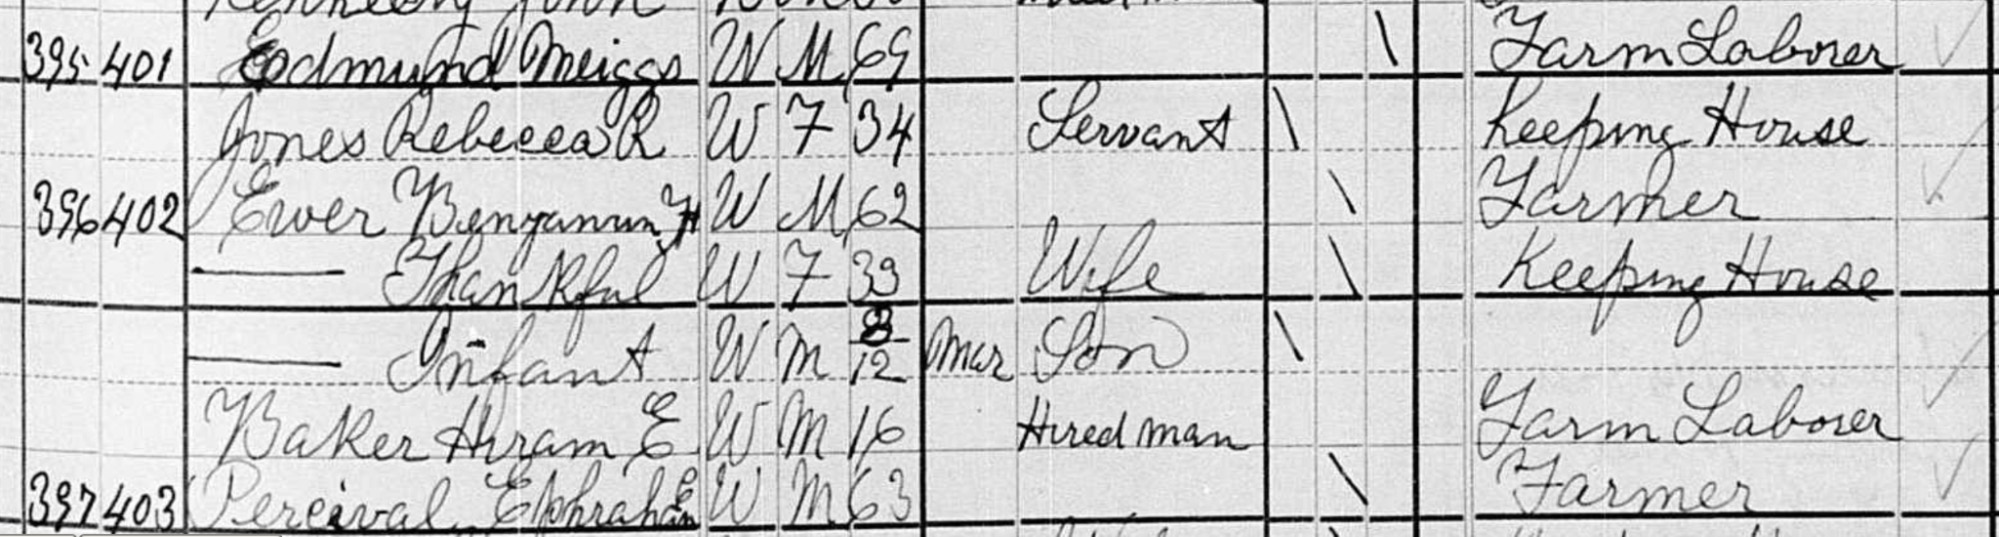 Kennedy John
395 401 Edmund Meiggs W M 69 \ Farm Laborer
Jones Rebecca R W F 34 Servant \ Keeping House
396 402 Ewer Benjamin F W M 62 \ Farmer
—— Thankful W F 39 Wife \ Keeping House
—— Infant W M 3/12 Mar Son \
Baker Hiram E W M 16 Hired man Farm Laborer
397 403 Percival Ephraham W M 63 \ Farmer